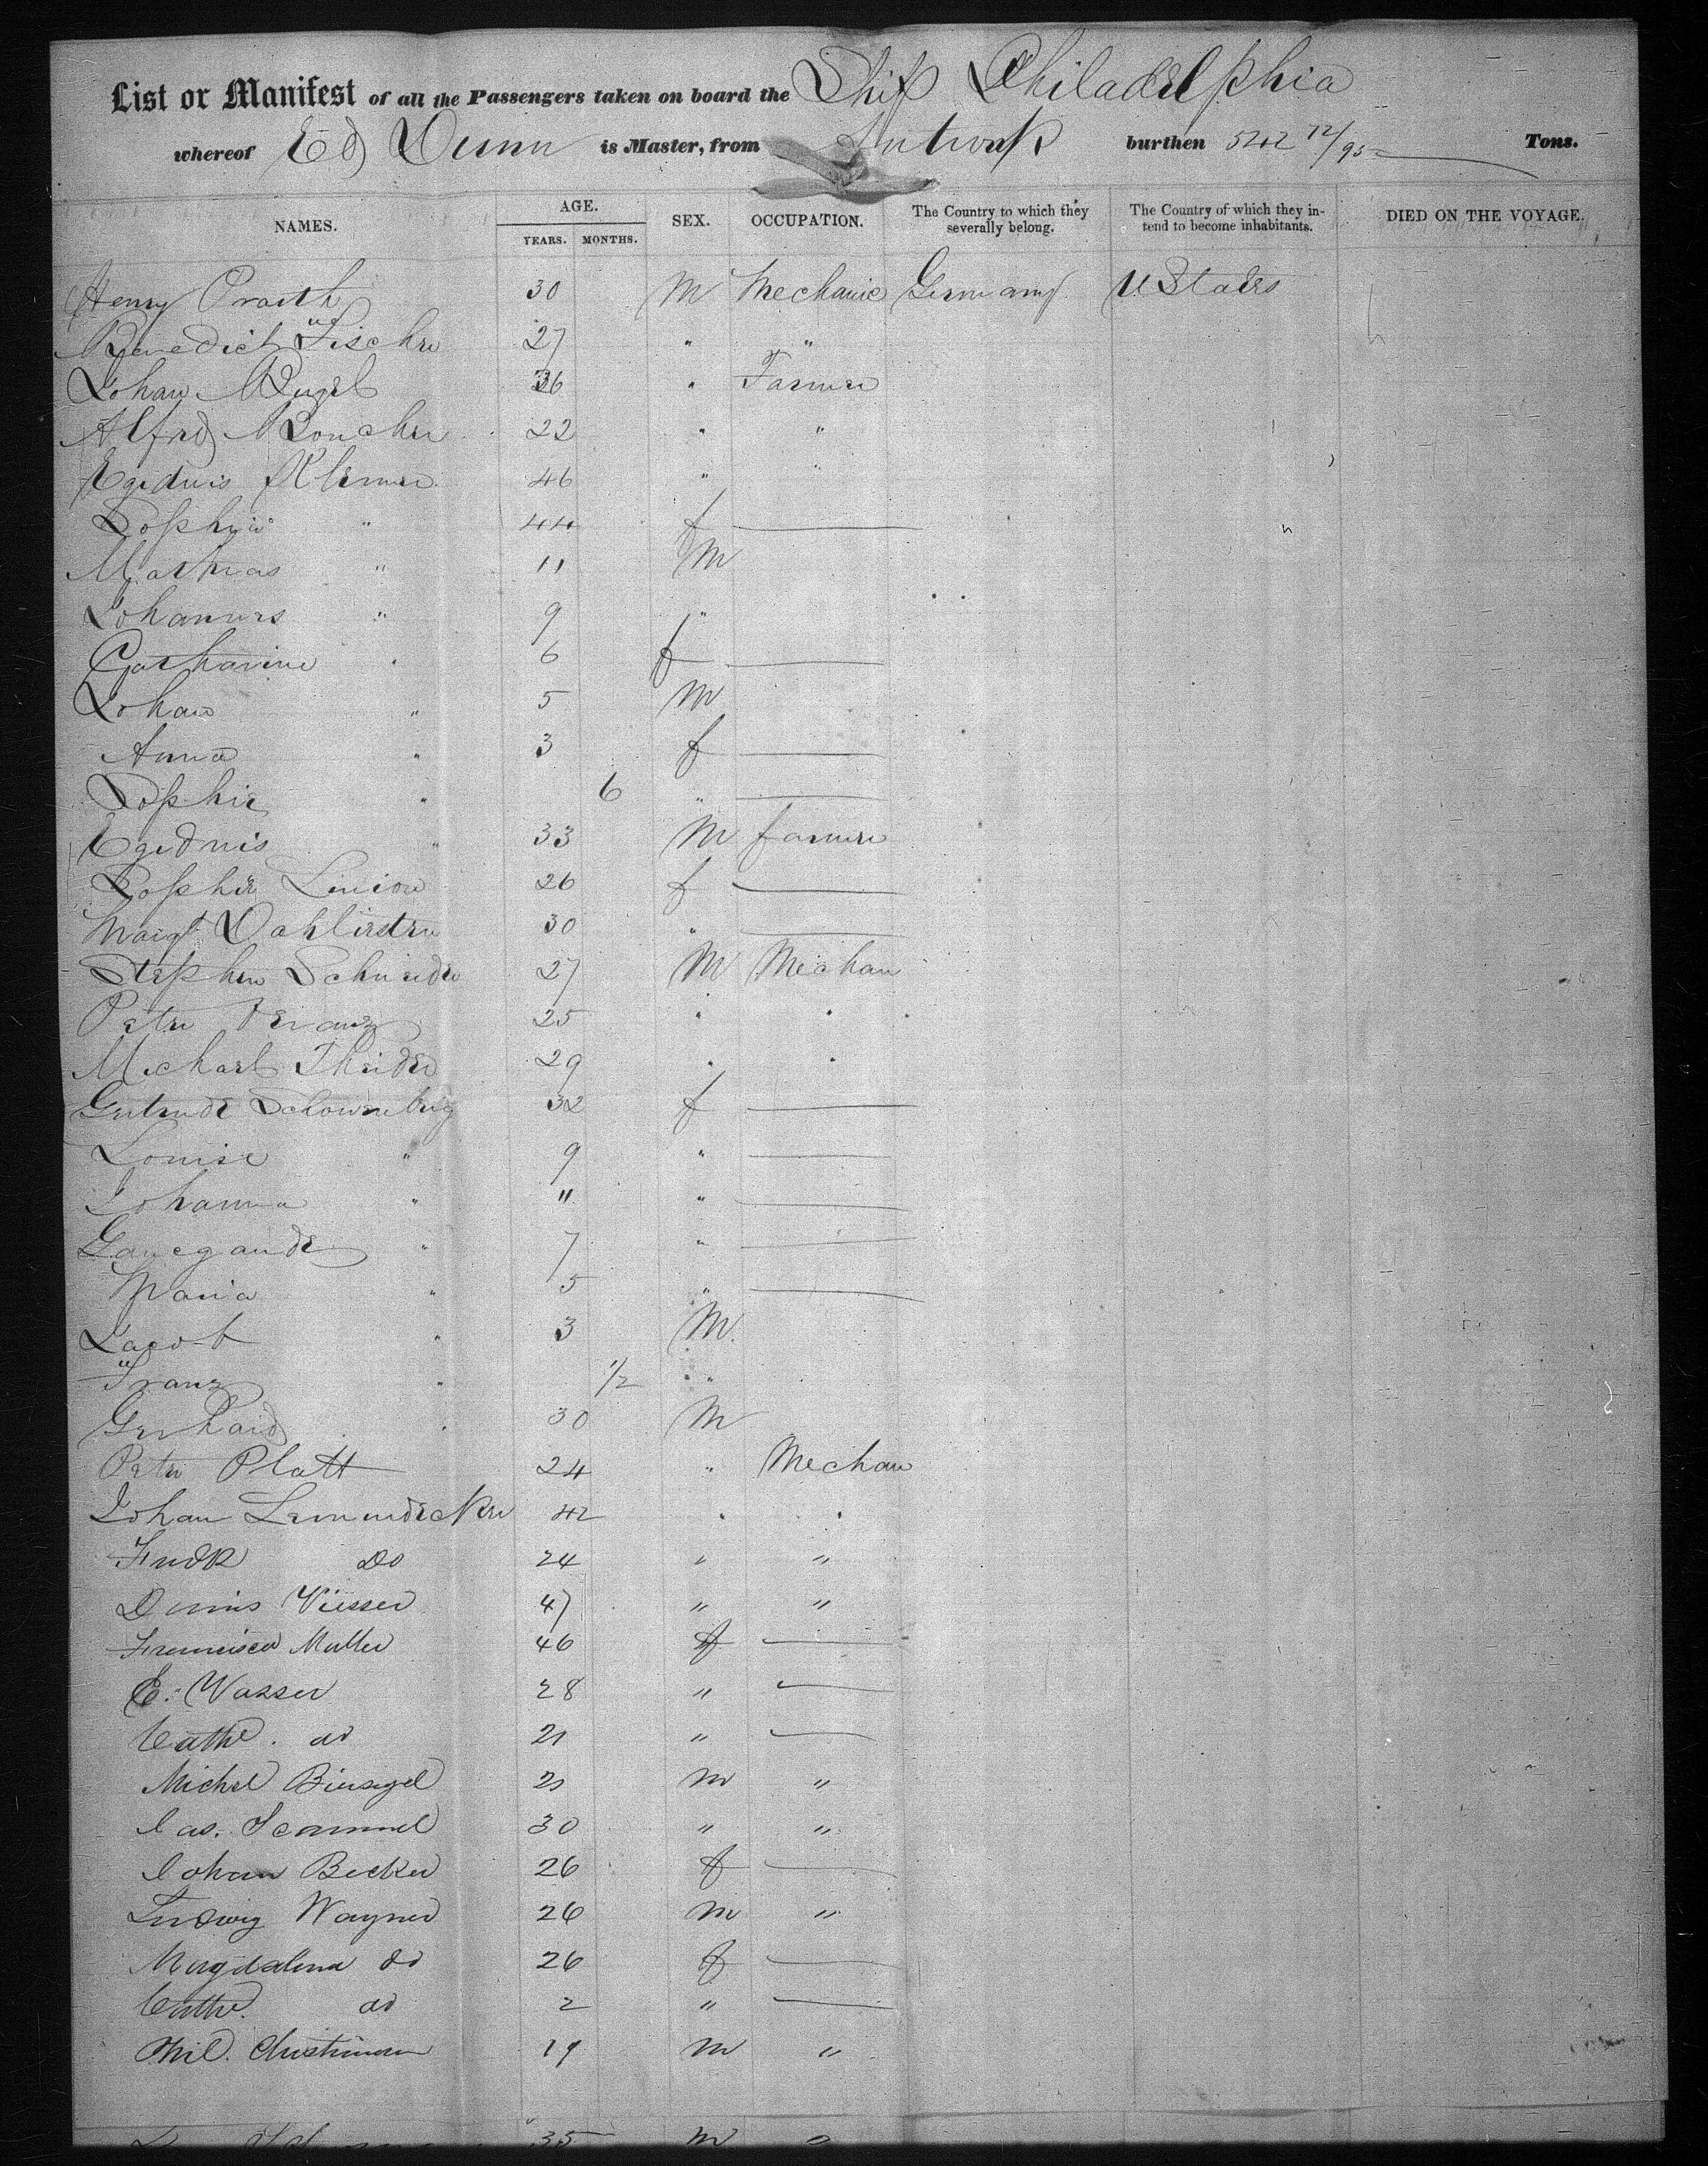 List or Manifest of all the Passengers taken on board the Ship Philadelphia
whereof Ed Dunn is Master, from Antwerp burthen 542 72/95 Tons.
NAMES. AGE. YEARS. MONTHS. SEX. OCCUPATION. The Country to which they severally belong. The Country of which they intend to become inhabitants. DIED ON THE VOYAGE.
Henry 30 M Mechanic Germany U States
Benedict Fischer 27 " "
Johan 36 " Farmer
Alfred 22 " "
Egidius 46 " "
Sophia " 44 f
Mathias " 11 M
Johannes " 9 "
Catharine " 6 f
Johan " 5 M
Anna " 3 f
Sophie " 6 "
Egidius " 33 M farmer
Sophie 26 f
Margt 30 "
Stephen Schneider 27 M Mechan
Peter 25 " "
Michael 29 " "
Gertrude 32 f
Louise " 9 "
Johanna " " "
" 7 "
Maria " 5 "
Jacob " 3 M
Franz " 1/2 "
Gerhard " 30 M
Peter Platt 24 " Mechan
Johan 42 " "
Fredk Do 24 " "
Dennis 47 " "
Francisca Muller 46 f
E. Wasser 28 "
Cathe. do 21 "
Michel 21 m "
30 " "
Johan Becker 26 f
Ludwig Wagner 26 m "
Magdalena do 26 f
Cathe. do 2 "
19 m "
35 m "